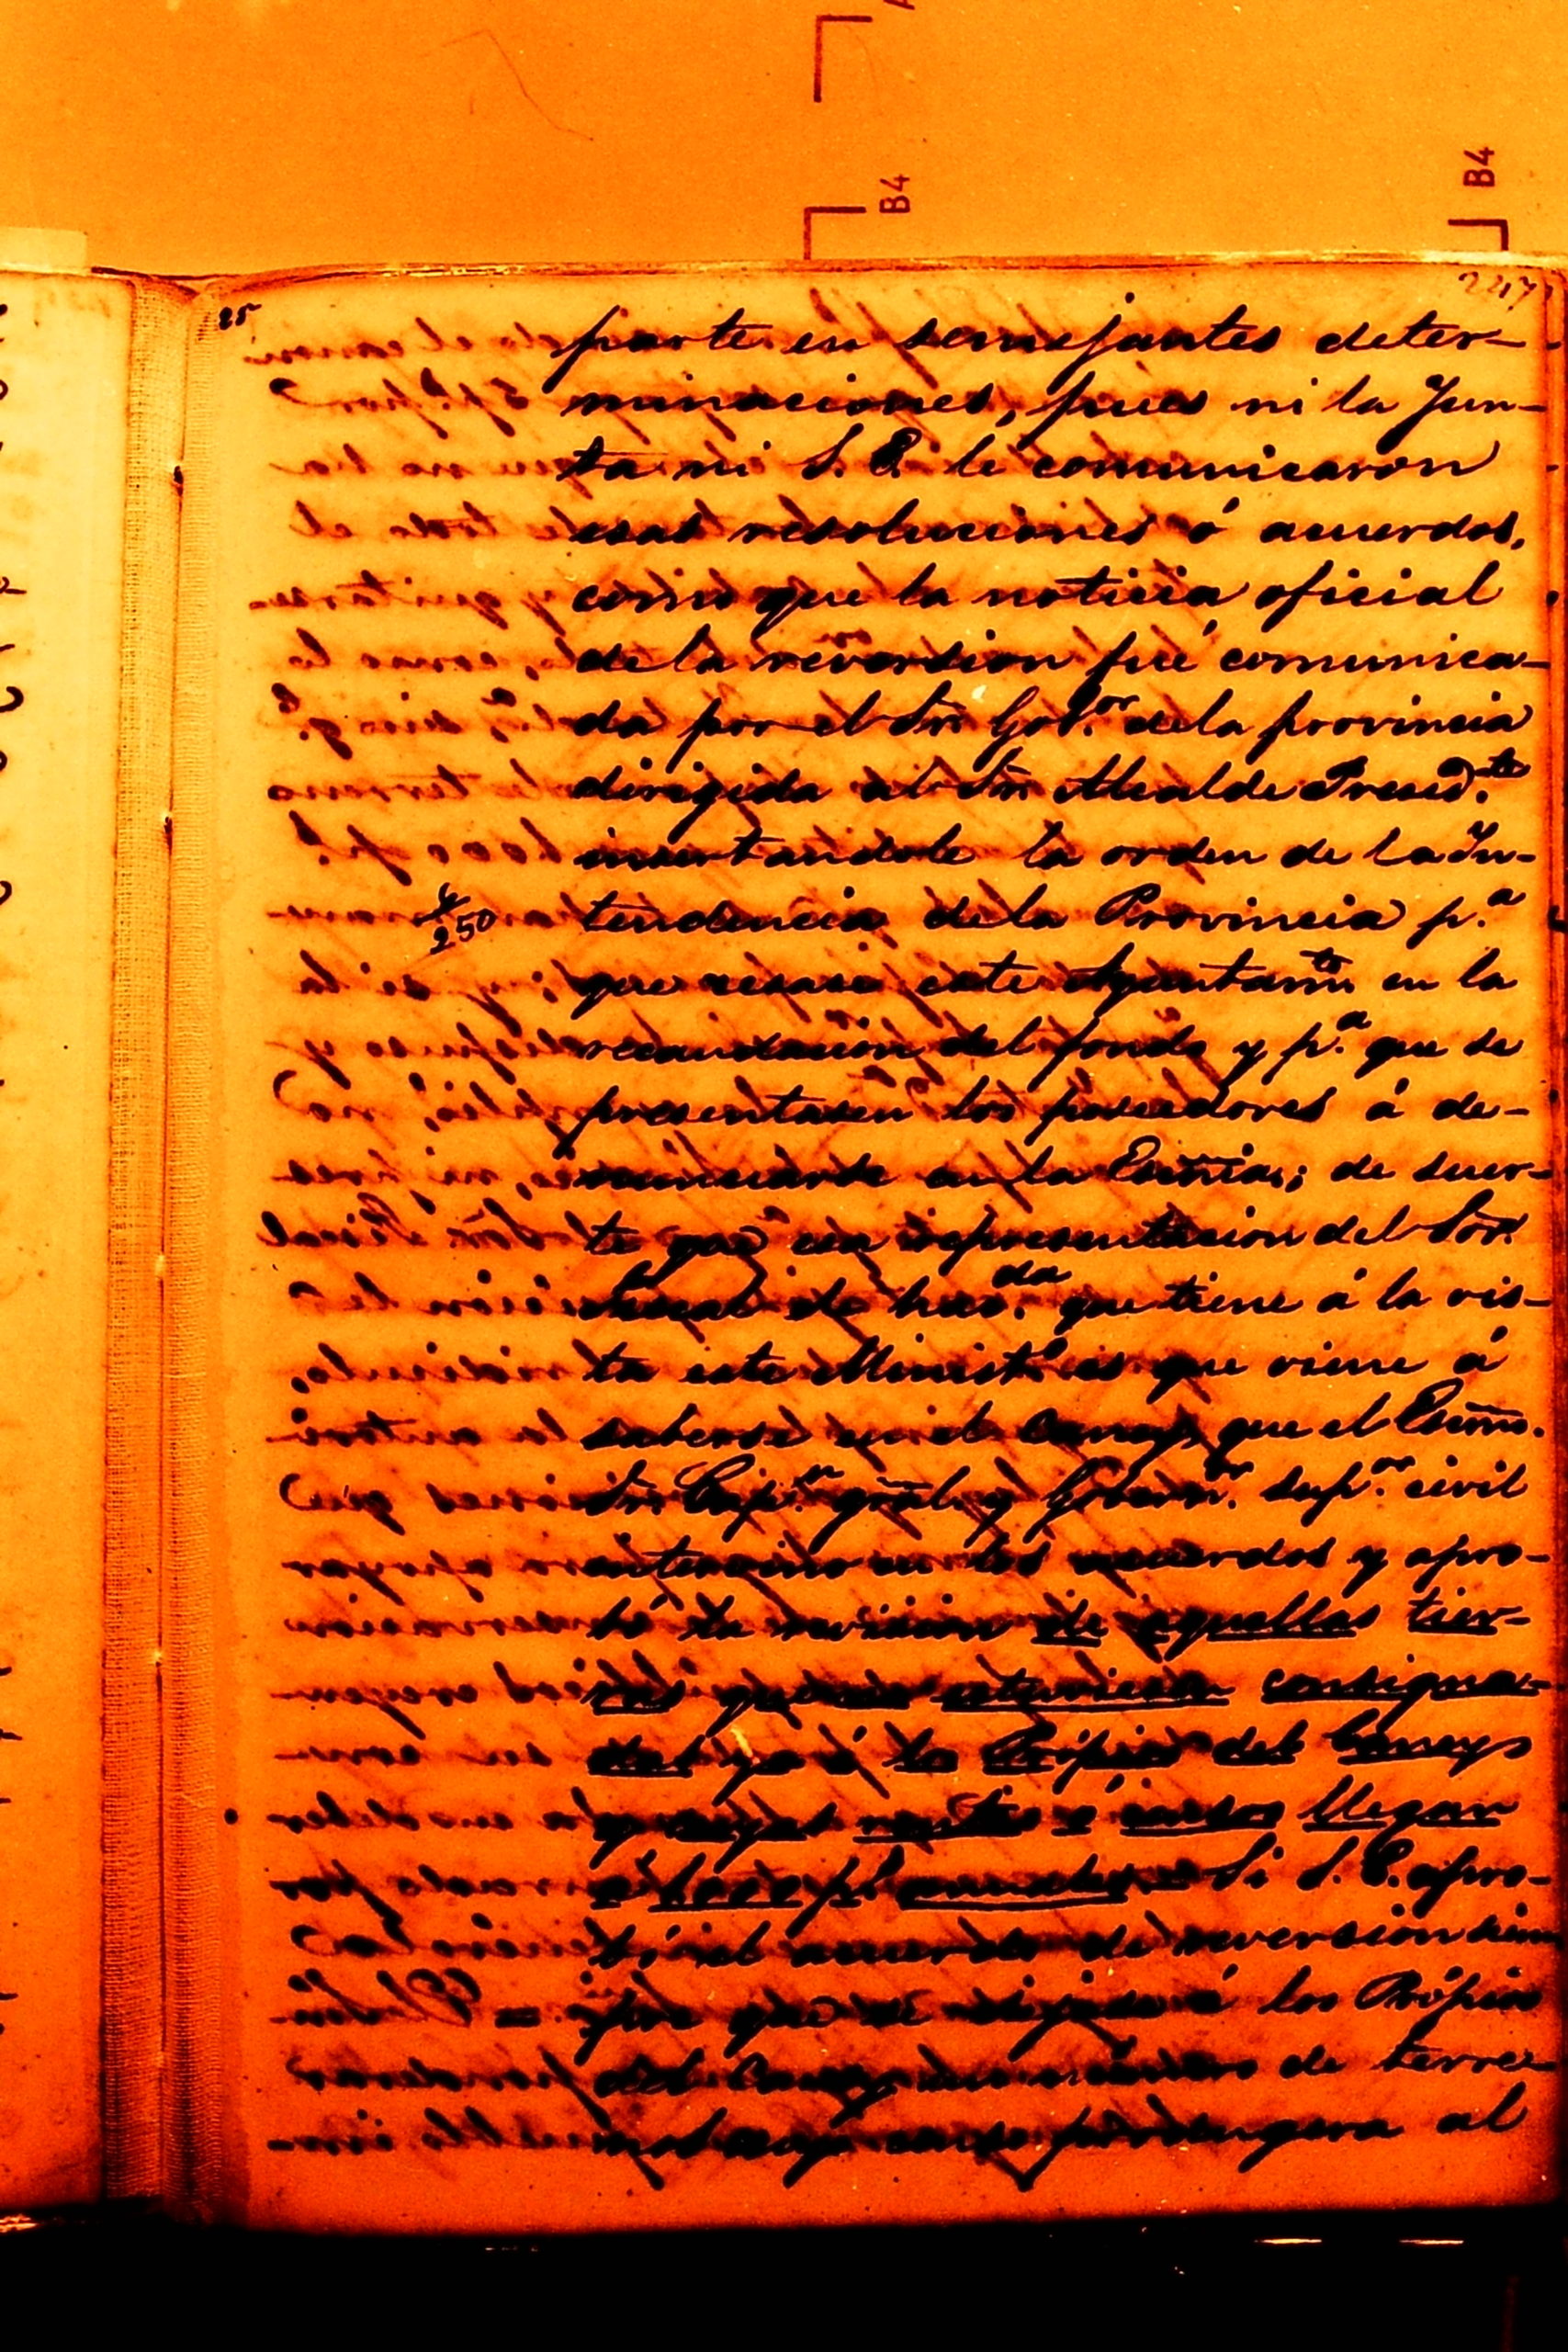 B4
B4
25
2217
parte en semejantes deter-
minaciones, pues ni la Jun-
ta ni S. E. le comunicaron
esas resoluciones ó acuerdos,
como que la noticia oficial
de la reversion fué comunica-
da por el Sr. Gob.or de la provincia
dirigida al Sr. Alcalde Presid.te
insertandole la orden de la In-
250
tendencia de la Provincia p.a
que cesase este Ayuntam.to en la
recaudacion del fondo y p.a que se
presentasen los poseedores á de-
nunciarse en la Escñia; de suer-
te que en representacion del Sor.
Fiscal de hac.da que tiene á la vis-
ta este Minist.o es que viene á
saberse en el Caney, que el Escmo.
Sr. Cap.n gral. y Gobern.or sup.or civil
intervino en los acuerdos y apro-
bó la revision de aquellas tier-
ras que estuviesen consigna-
das ya á los Própios del Caney
y cuyos censos llegan
á p.s anuales = Si S. E. apro-
bó el acuerdo de reversion siem
pre que se dejase á los Própios
del Caney un número de terre-
nos cuyo censo produgera al